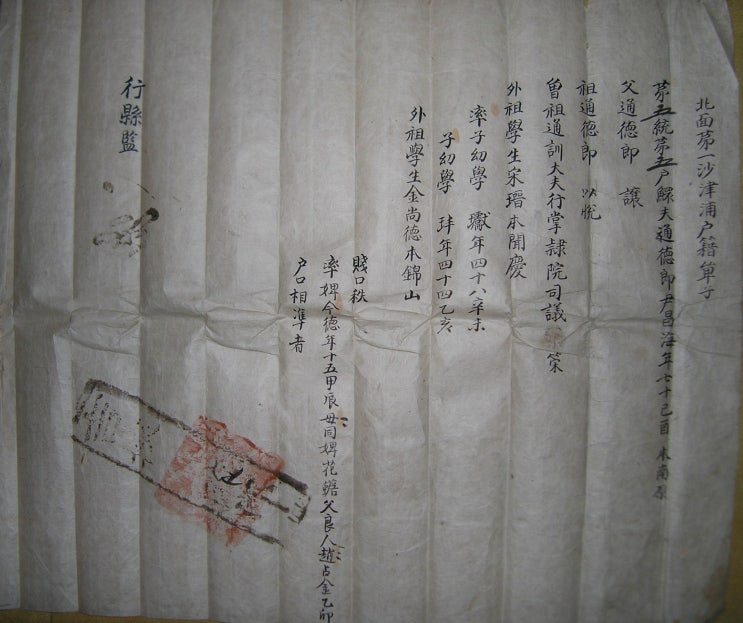 北面第一沙津浦户籍單子
第五統第五户鰥夫通德郎尹昌海年七十己酉 本南原
父通德郎 讓
祖通德郎 以悅
曾祖通訓大夫行掌隷院司議 榮
外祖學生宋瑨本聞慶
率子幼學 巘年四十八辛未
子幼學 年四十四乙亥
外祖學生金尚德本錦山
賤口秩
率婢今德年十五甲辰母同婢花 父良人趙占金乙卯
户口相準者
行縣監